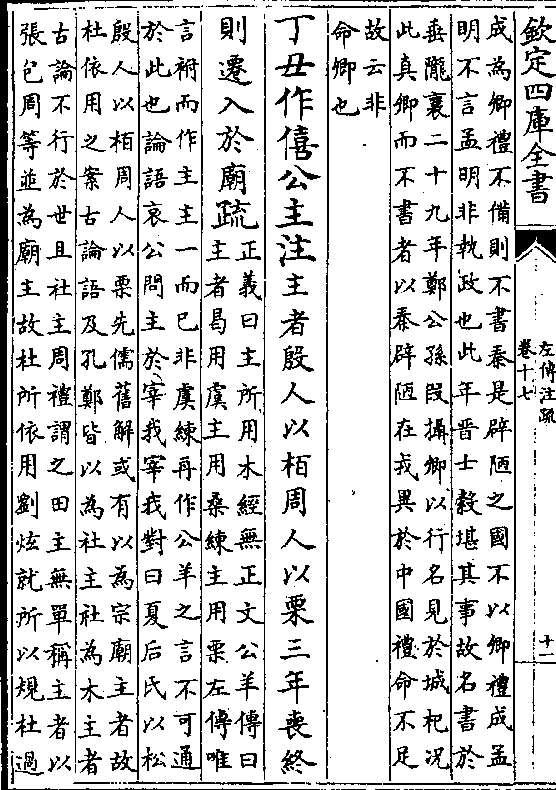 欽定四庫全書
左傳注疏
卷十七
十一
成為卿禮不備則不書秦是辟陋之國不以卿禮成孟
明不言孟明非執政也此年晉士縠堪其事故名書於
垂隴襄二十九年鄭公孫段攝卿以行名見於城杞况
此真卿而不書者以秦辟陋在戎異於中國禮命不足
故云非
命卿也
丁丑作僖公主注主者殷人以栢周人以栗三年喪終
則遷入於廟疏
正義曰主所用木經無正文公羊傳曰
主者曷用虞主用桑練主用栗左傳唯
言祔而作主主一而已非虞練再作公羊之言不可通
於此也論語哀公問主於宰我宰我對曰夏后氏以松
殷人以栢周人以栗先儒舊解或有以為宗廟主者故
杜依用之案古論語及孔鄭皆以為社主社為木主者
古論不行於世且社主周禮謂之田主無單稱主者以
張包周等並為廟主故杜所依用劉炫就所以規杜過